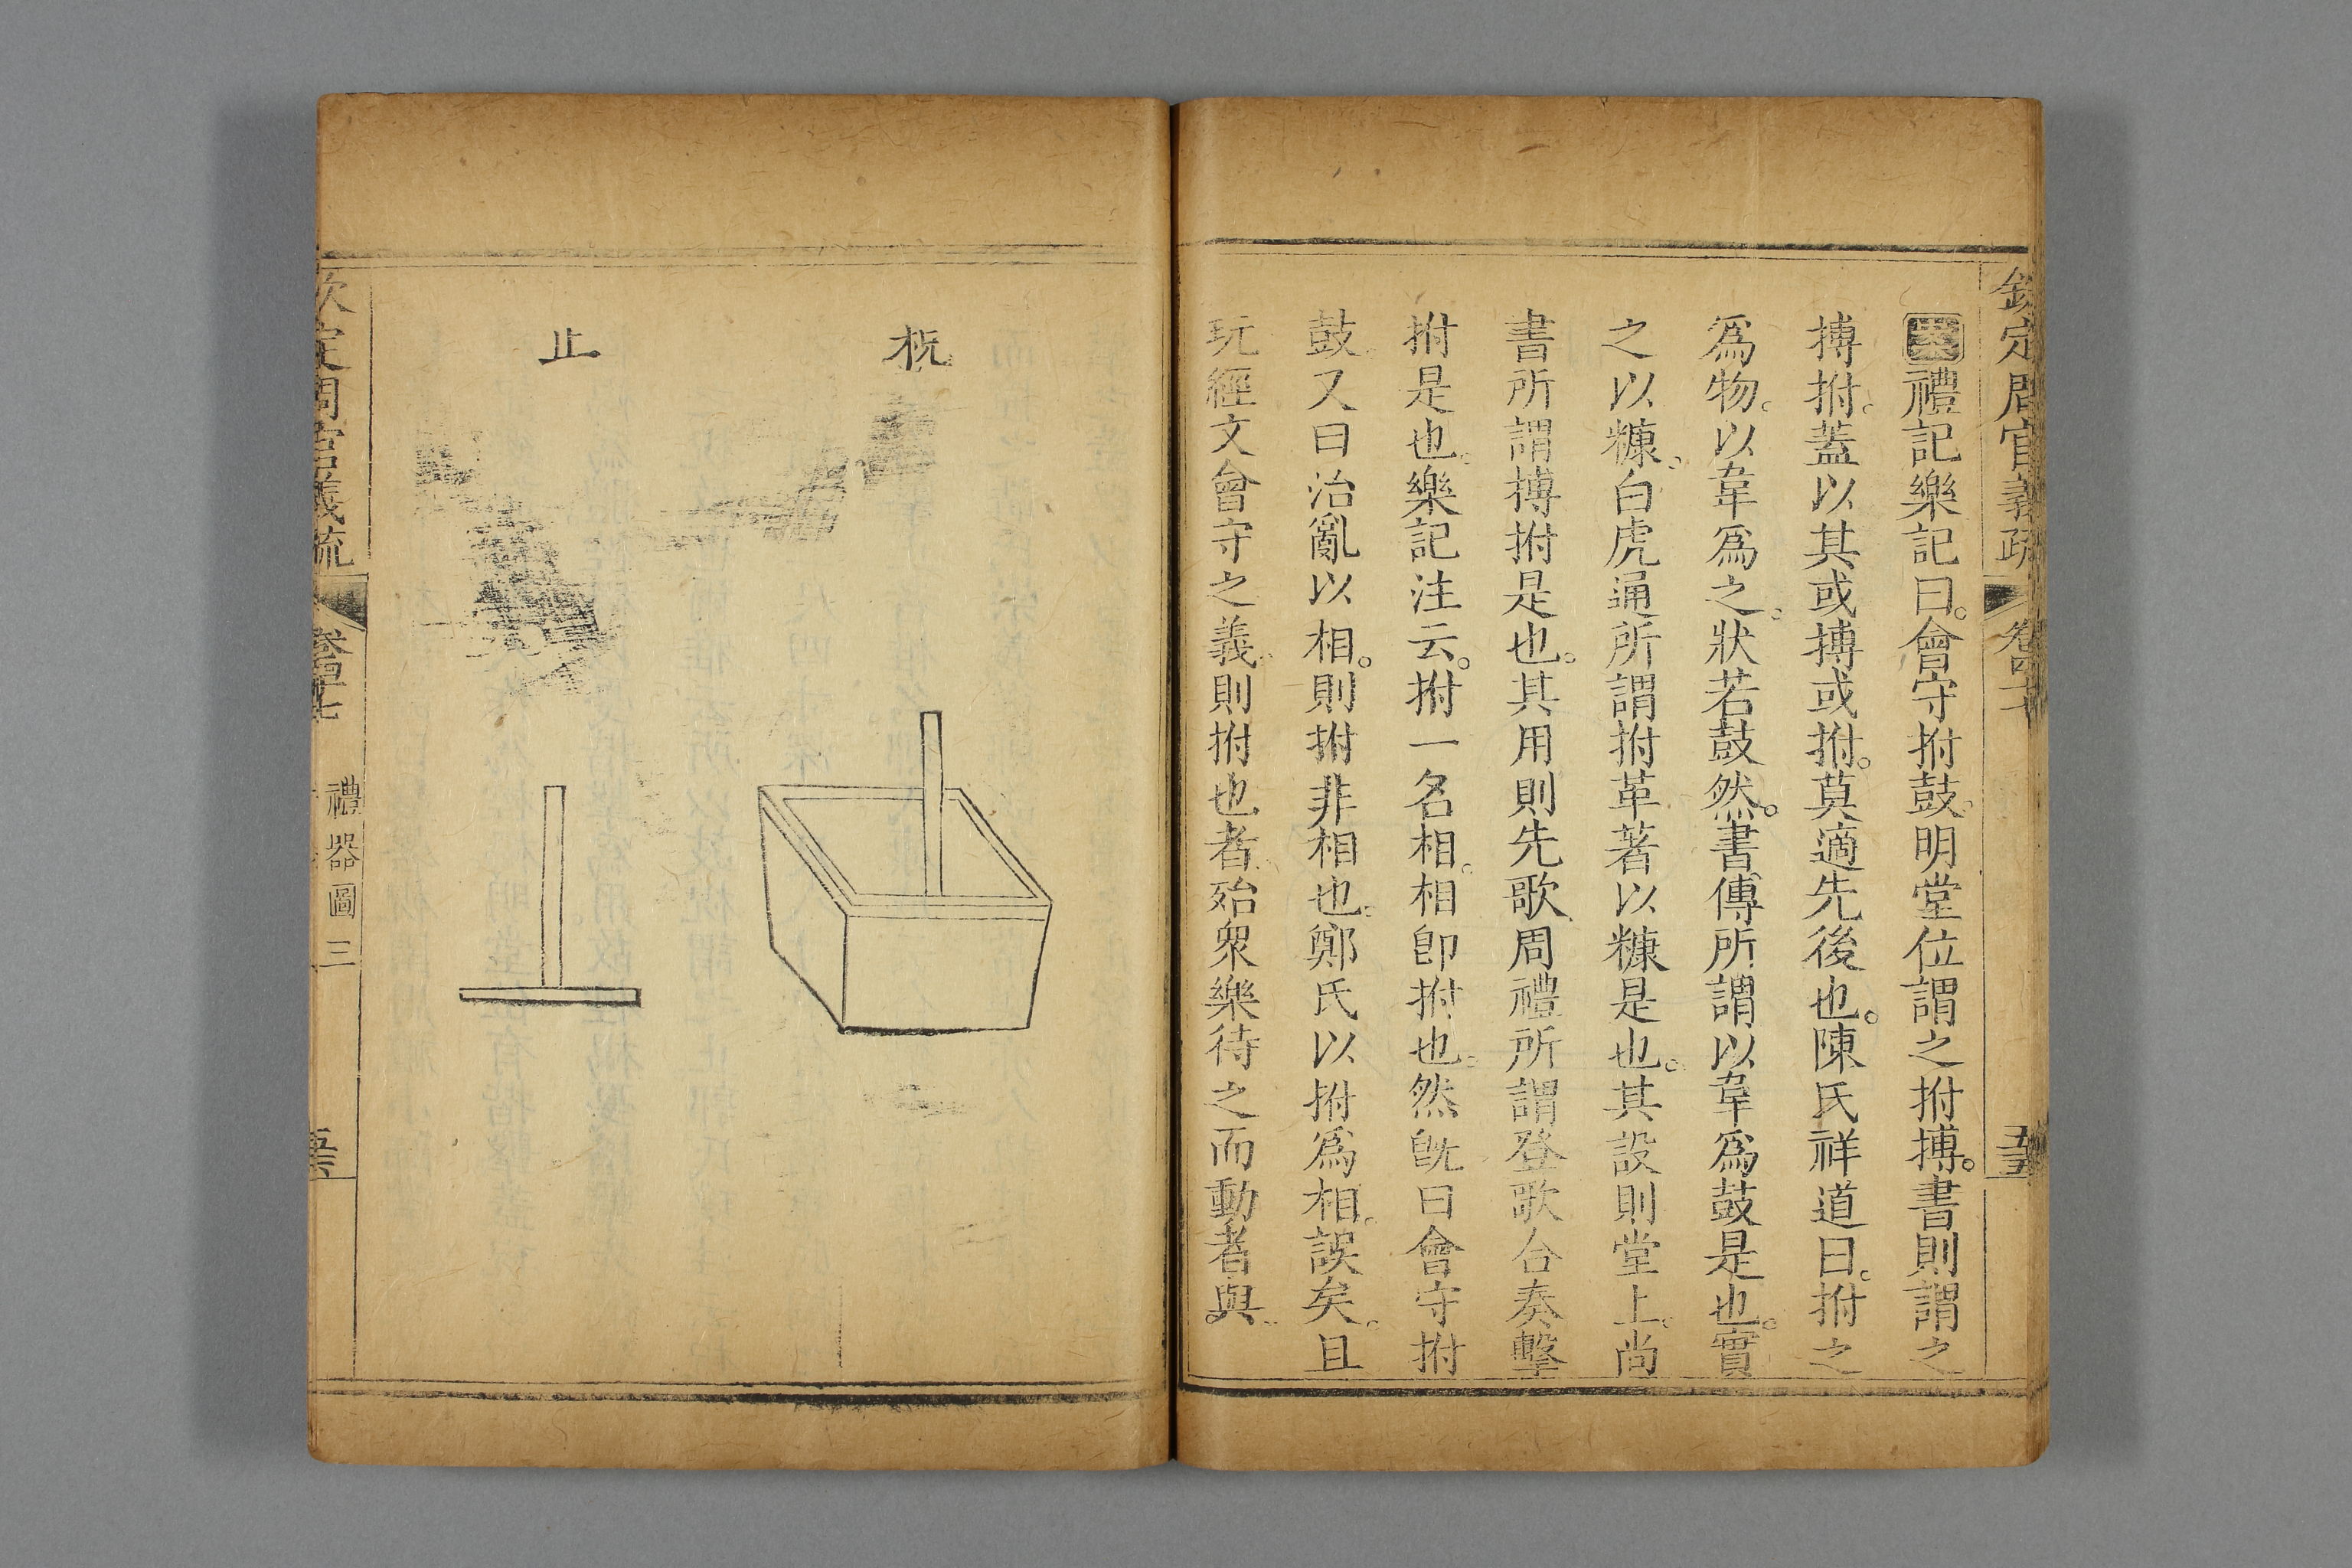 欽定周官義疏 卷四十七
禮記樂記曰會守拊鼓明堂位謂之拊搏書則謂之
搏拊蓋以其或搏或拊莫適先後也陳氏祥道曰拊之
爲物以韋爲之狀若鼓然書傳所謂以韋爲鼓是也實
之以糠白虎通所謂拊革著以糠是也其設則堂上尚
書所謂搏拊是也其用則先歌周禮所謂登歌合奏擊
拊是也樂記注云拊一名相相卽拊也然旣曰會守拊
鼓又曰治亂以相則拊非相也鄭氏以拊爲相誤矣且
玩經文會守之義則拊也者殆衆樂待之而動者與
柷
止
欽定周官義疏 卷四十七 禮器圖三